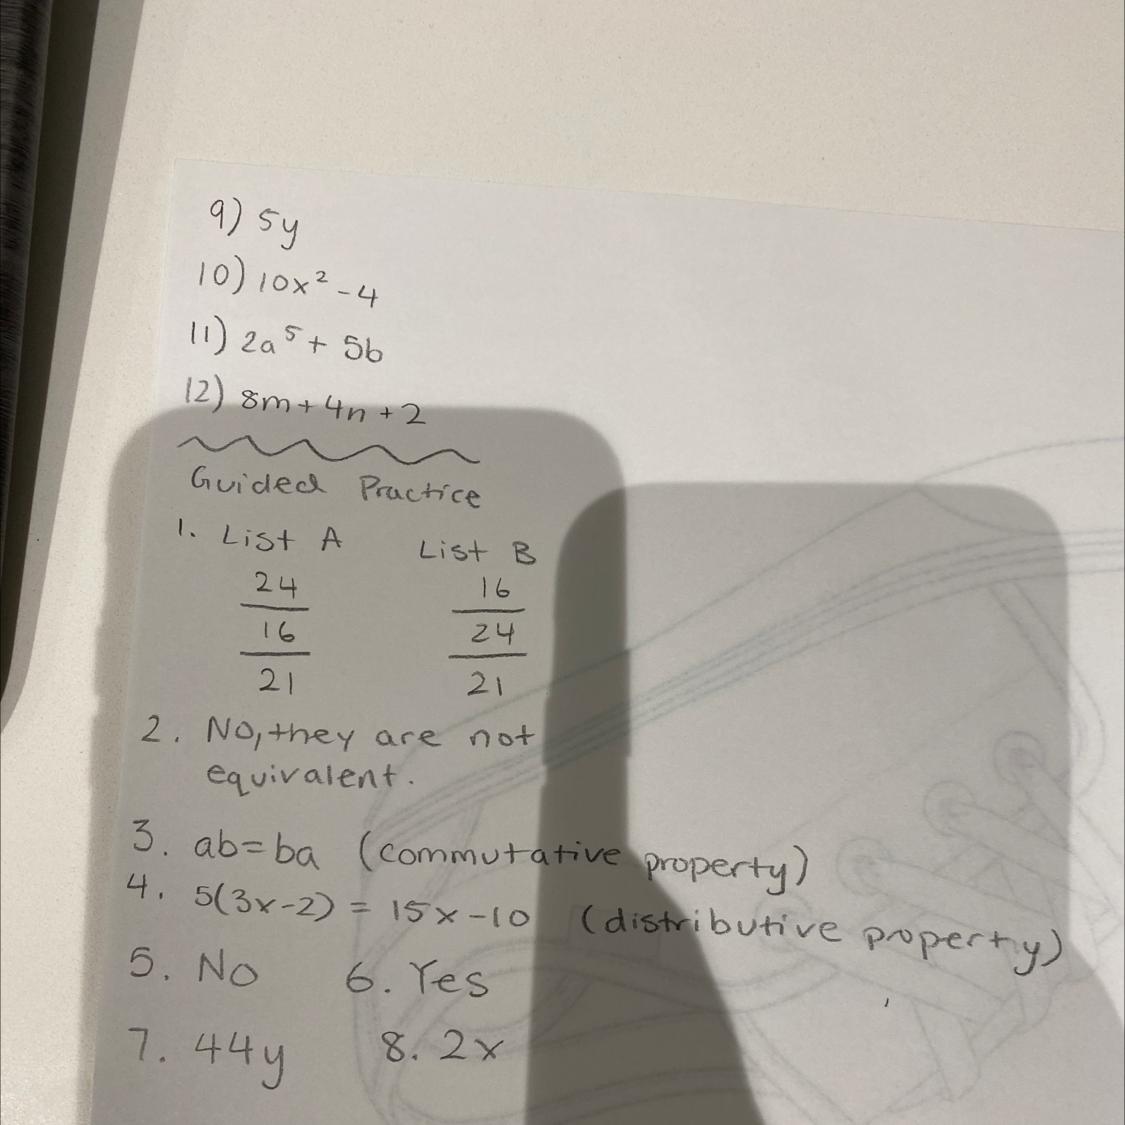 9) 5y
10) 10x² - 4
11) 2a⁵ + 5b
12) 8m + 4n + 2
Guided Practice
1. List A List B
24 16
16 24
21 21
2. No, they are not
equivalent.
3. ab = ba (commutative property)
4. 5(3x-2) = 15x - 10 (distributive property)
5. No 6. Yes
7. 44y 8. 2x